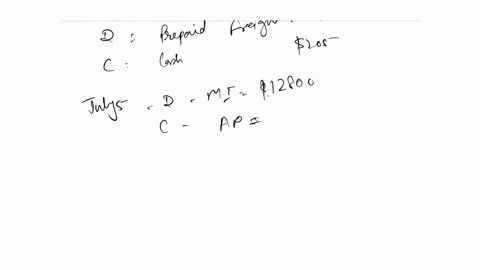 D : Prepaid freight
$205
C : Cash
July 5 - D - MI = $12800
C - AP =